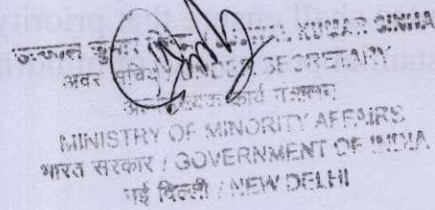 कुमार / KUMAR SINHA
अवर सचिव / UNDER SECRETARY
कार्य मंत्रालय
MINISTRY OF MINORITY AFFAIRS
भारत सरकार / GOVERNMENT OF INDIA
नई दिल्ली / NEW DELHI